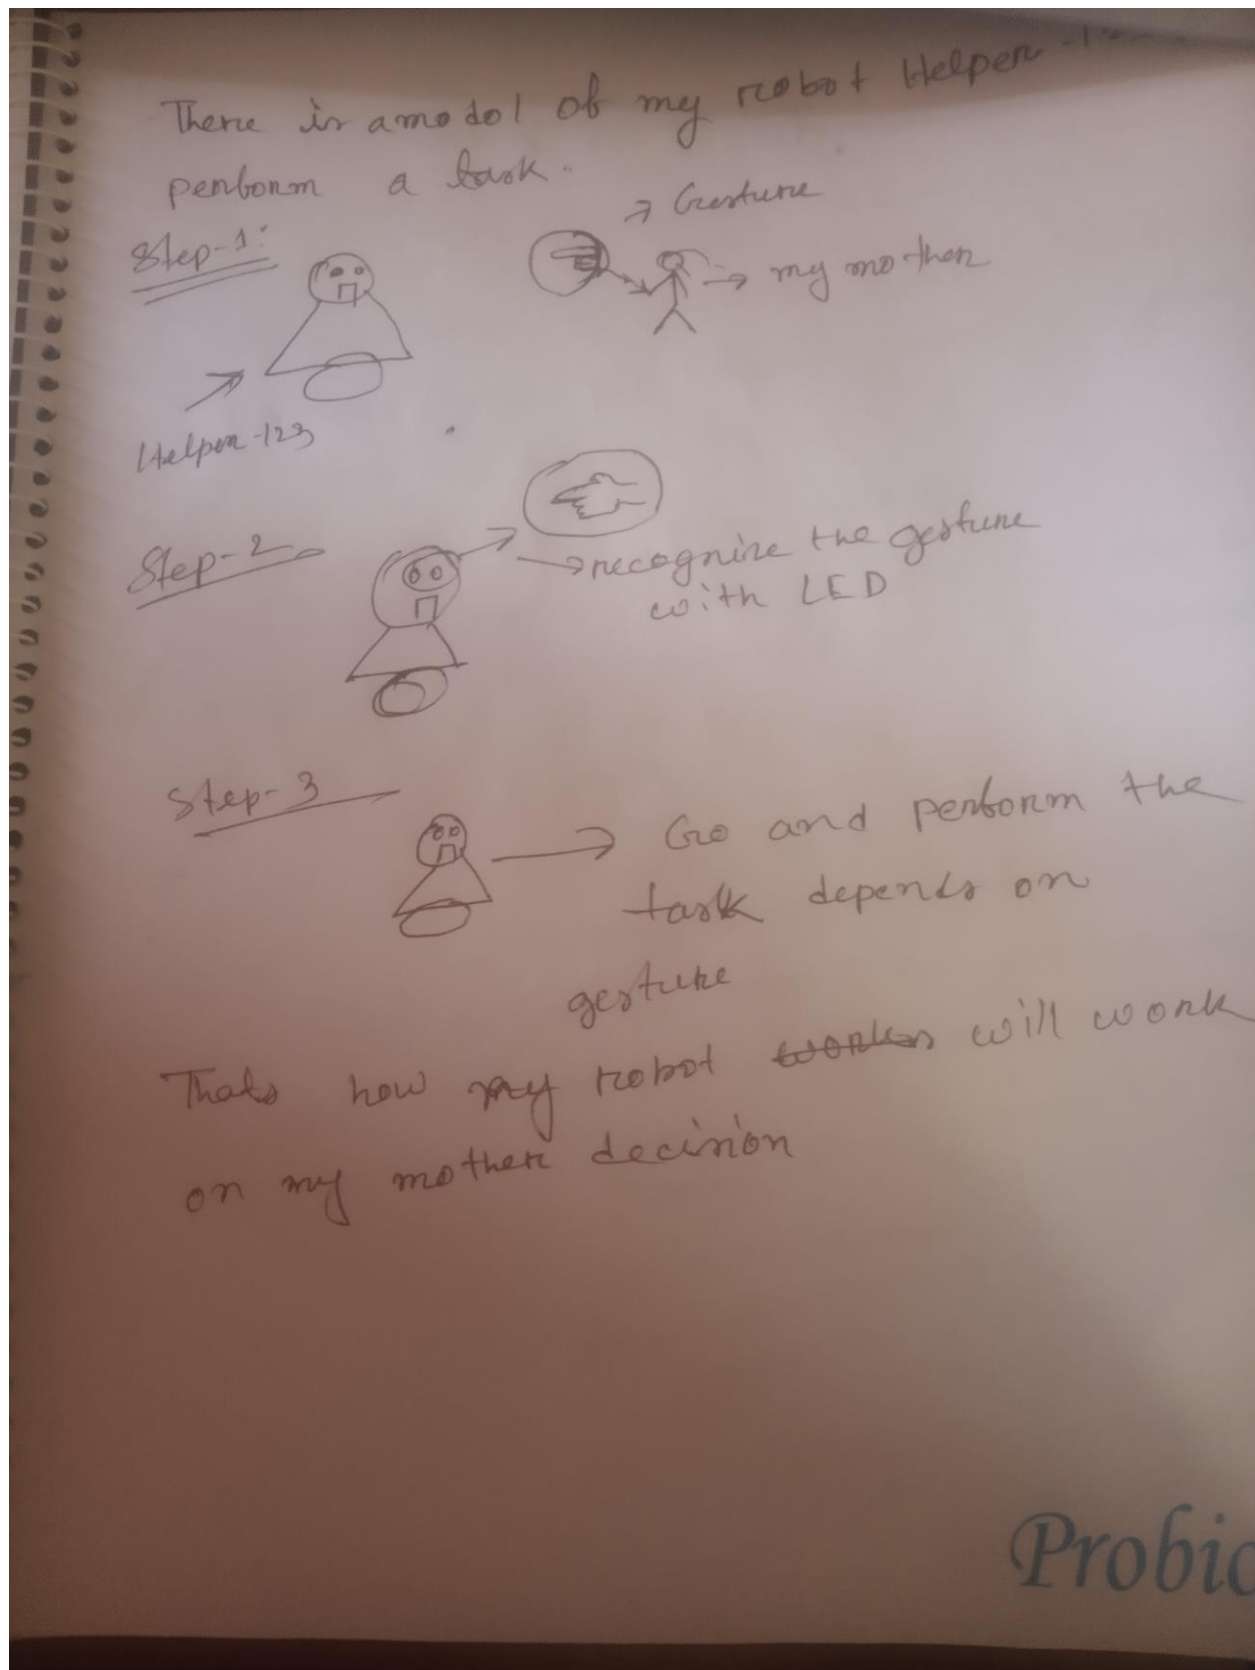 There is a modol of my robot Helper -1
perform a task.
Step-1:
→ Gesture
→ my mother
Helper-123
Step-2
→ recognize the gesture
with LED
Step-3
→ Go and perform the
task depends on
gesture
Thats how my robot works will work
on my mother decision
Probio